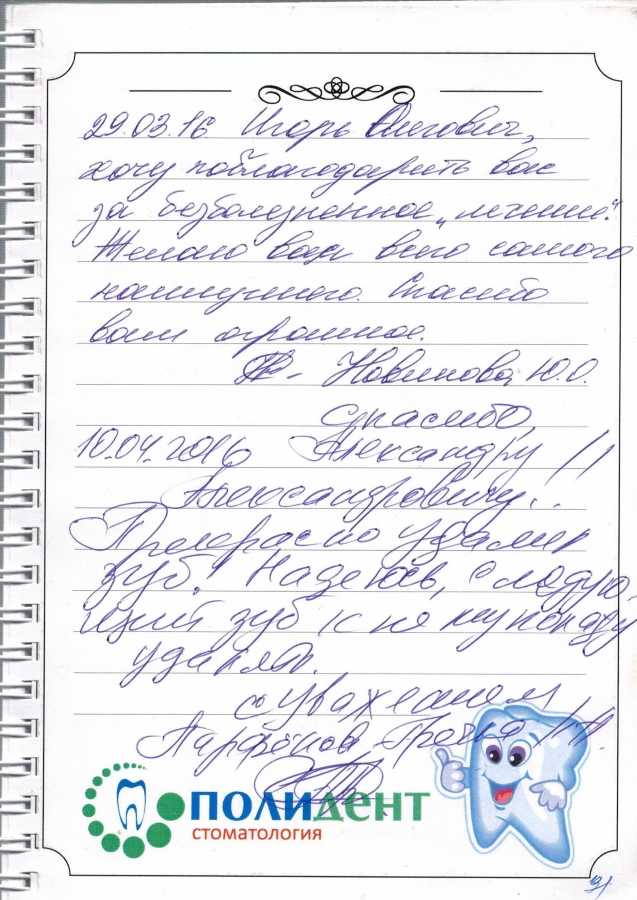 29.03.16 Игорь Олегович,
хочу поблагодарить вас
за безболезненное „лечение".
Желаю вам всего самого
наилучшего. Спасибо
вам огромное.
Новикова Ю.О.
Спасибо,
10.04.2016 Александру
Александровичу!..
Прекрасно удалил
зуб! Надеюсь, следую-
щий зуб к не му попаду
удалят.
с уважением
Парфёнов
ПОЛИДЕНТ
СТОМАТОЛОГИЯ